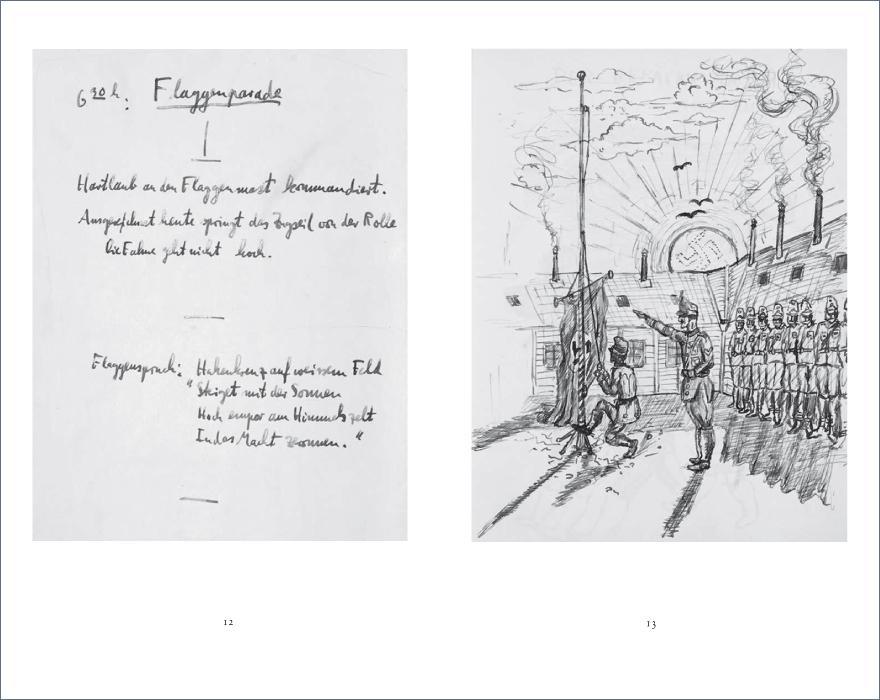 6 30 h: Flaggenparade
Hartlaub an den Flaggenmast kommandiert.
Ausgerechnet heute springt das Zugseil von der Rolle
Die Fahne geht nicht hoch.
Flaggenspruch: Hakenkreuz auf weissem Feld
"Steiget mit der Sonnen
Hoch empor am Himmelszelt
In das Macht."
12
13